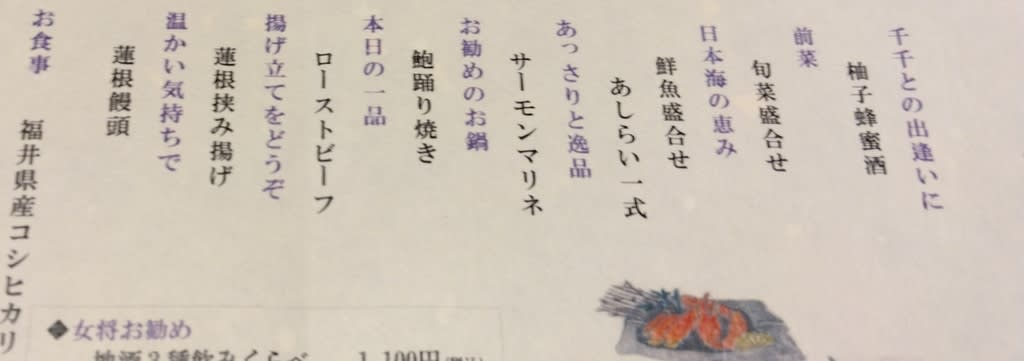 千千との出逢いに
柚子蜂蜜酒
前菜
旬菜盛合せ
日本海の恵み
鮮魚盛合せ
あしらい一式
あっさりと逸品
サーモンマリネ
お勧めのお鍋
鮑踊り焼き
本日の一品
ローストビーフ
揚げ立てをどうぞ
蓮根挟み揚げ
温かい気持ちで
蓮根饅頭
お食事
福井県産コシヒカリ
◆女将お勧め
地酒3種飲みくらべ 1,100円(税込)